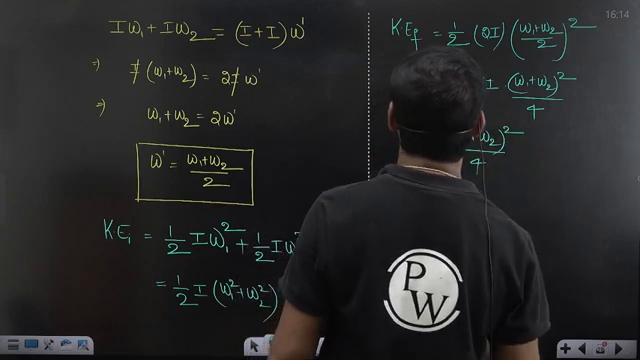 Iω₁ + Iω₂ = (I+I)ω'
⇒ I(ω₁+ω₂) = 2Iω'
⇒ ω₁+ω₂ = 2ω'
ω' = (ω₁+ω₂)/2
K.Eᵢ = 1/2 Iω₁² + 1/2 Iω
= 1/2 I(ω₁²+ω₂²)
K.E_f = 1/2 (2I) ((ω₁+ω₂)/2)²
I (ω₁+ω₂)²/4
ω₂)²/4
PW
16:14